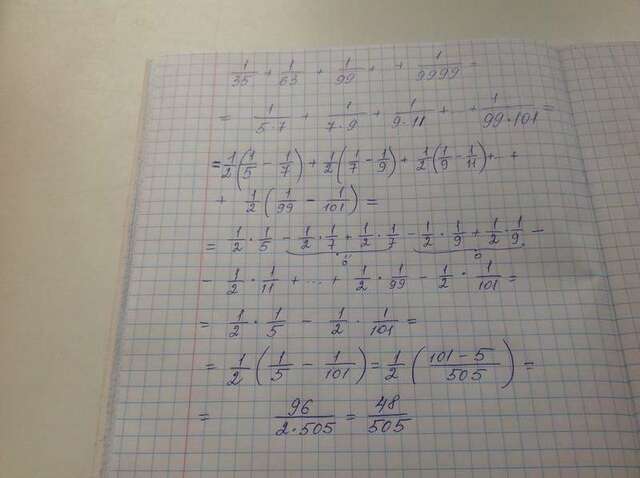 1/35 + 1/63 + 1/99 + .. + 1/9999 =
= 1/5·7 + 1/7·9 + 1/9·11 + .. + 1/99·101 =
= 1/2 (1/5 − 1/7) + 1/2 (1/7 − 1/9) + 1/2 (1/9 − 1/11) + .. +
+ 1/2 (1/99 − 1/101) =
= 1/2 · 1/5 − 1/2 · 1/7 + 1/2 · 1/7 − 1/2 · 1/9 + 1/2 · 1/9 −
0 0
− 1/2 · 1/11 + ... + 1/2 · 1/99 − 1/2 · 1/101 =
= 1/2 · 1/5 − 1/2 · 1/101 =
= 1/2 (1/5 − 1/101) = 1/2 (101 − 5/505) =
= 96/2·505 = 48/505